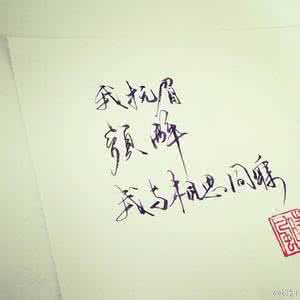 我抚眉
顏醉
我与相思同